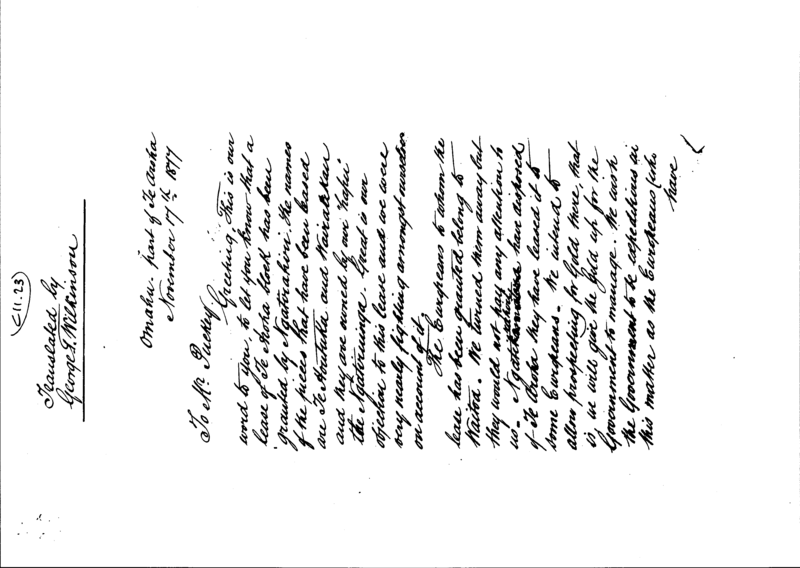 (11.23)
Translated by
George T. Wilkinson
Omahu. part of Te Aroha
November 17th 1877
To Mr. Puckey
Greeting, This is our
word to you, to let you know that a
lease of Te Aroha block has been
granted by Ngatirahiri. The names
of the pieces that have been leased
are Te and
and they are owned by our Hapu
the. Great is our
objection to this lease and we were
very nearly fighting amongst ourselves
on account of it.
The Europeans to whom the
lease has been granted belong to
. We turned them away but
they would not pay any attention to
us. has
of Te Aroha they have leased it to
some Europeans. We intend to
allow prospecting for Gold here, that
is we will give the Gold up for the
Government to manage. We wish
the Government to be expeditious in
this matter as the Europeans (who
have